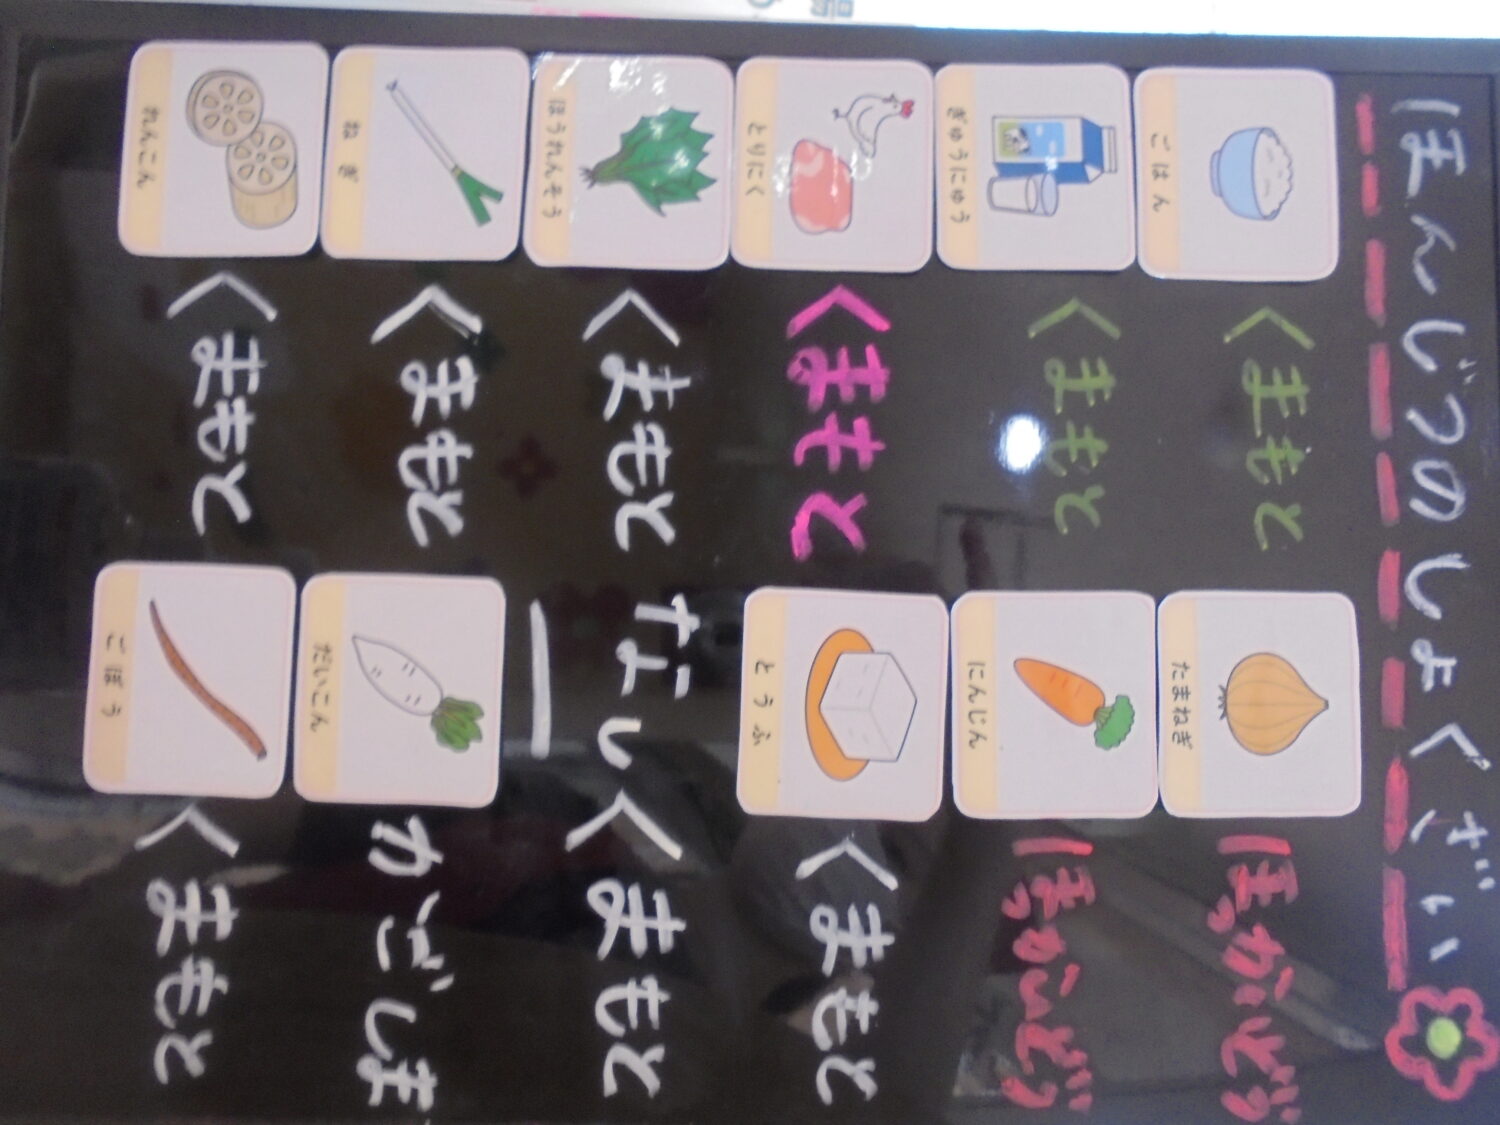 ほんじつのしょくざい
ごはん くまもと
たまねぎ ほっかいどう
ぎゅうにゅう くまもと
にんじん ほっかいどう
とりにく くまもと
とうふ くまもと
ほうれんそう くまもと
なし くまもと
ねぎ くまもと
だいこん かごしま
れんこん くまもと
ごぼう くまもと